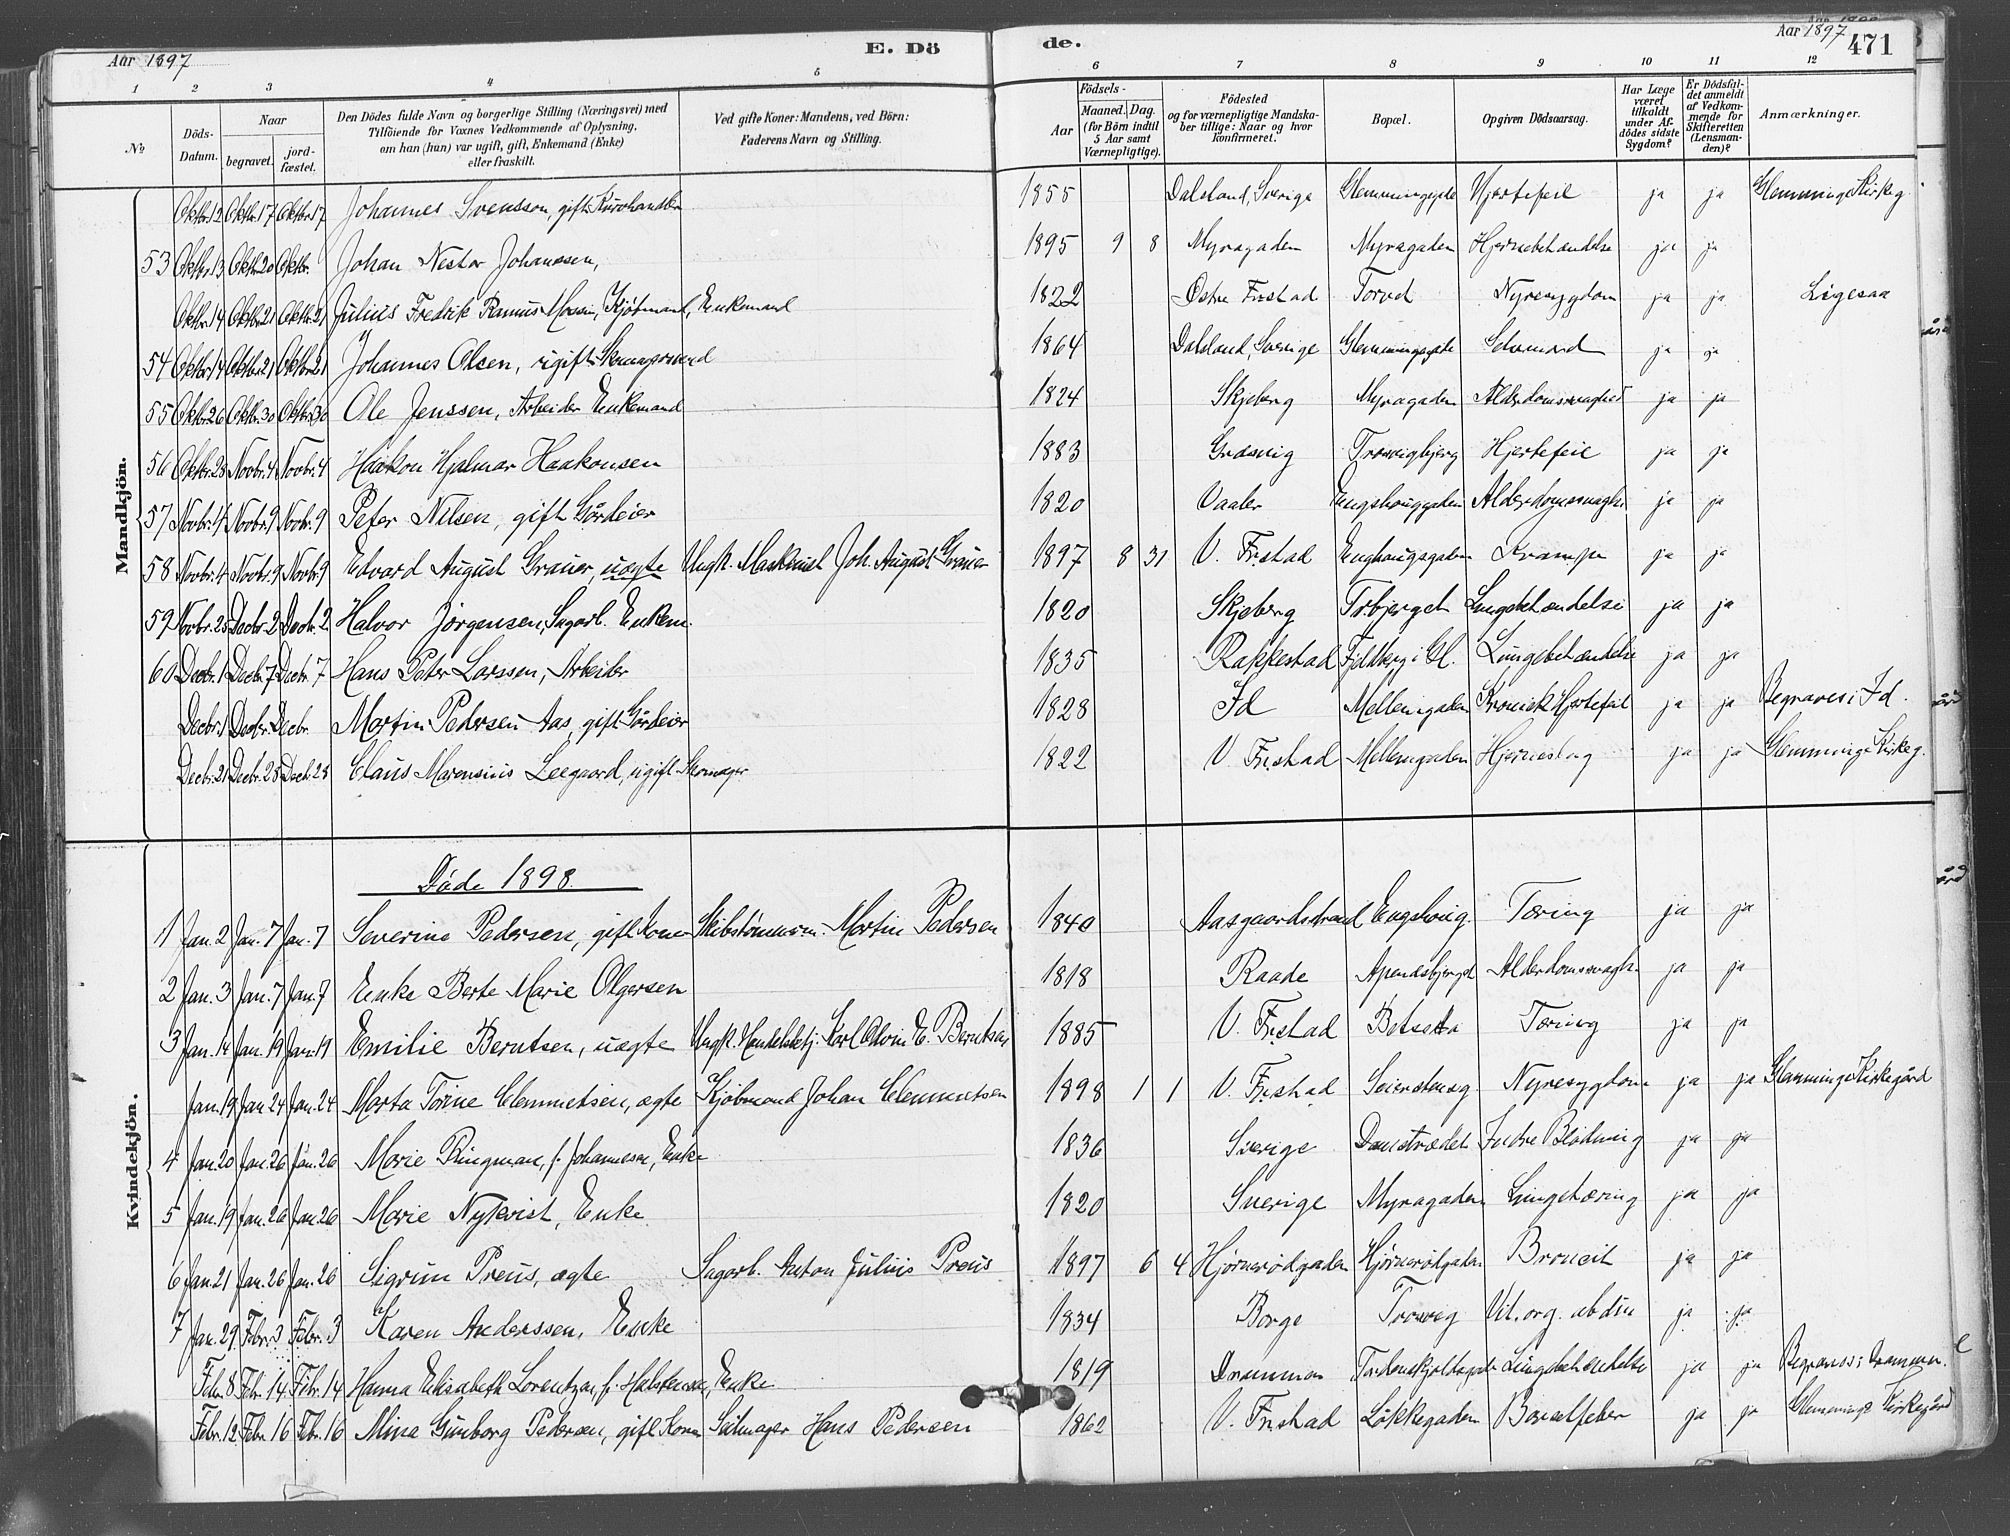 Aar 1897 E. Dö de. Aar 1897 471
1 2 3 4 5 6 7 8 9 10 11 12
No Döds-Datum. Naar begravet. jordfæstet. Den Dödes fulde Navn og borgerlige Stilling (Næringsvei) med Tilföiende for Voxnes Vedkommende af Oplysning, om han (hun) var ugift, gift, Enkemand (Enke) eller fraskilt. Ved gifte Koner: Mandens, ved Börn: Faderens Navn og Stilling. Födsels- Aar Maaned. Dag. (for Börn indtil 5 Aar samt Værnepligtige). Födested og for værnepligtige Mandskaber tillige: Naar og hvor konfirmeret. Bopæl. Opgiven Dödsaarsag. Har Læge været tilkaldt under Afdödes sidste Sygdom? Er Dödsfaldet anmeldt af Vedkommende for Skifteretten (Lensmanden)? Anmærkninger.
Mandkjön.
Oktbr. 12 Oktbr. 17 Oktbr. 17 Johannes Svensson, gift 1855 Dalsland, Sverige Hjertefeil ja ja Glemminge Kirkeg.
53 Oktbr. 13 Oktbr. 20 Oktbr. Johan Nestor Johanssen, 1895 9 8 Myragaden Myragaden Hjernebetændelse ja ja
Oktbr. 14 Oktbr. 21 Oktbr. 21 Julius Fredrik Rasmus Kjöbmand, Enkemand 1822 Östre Fr.stad Torvet Nyresygdom ja ja Ligesaa
54 Oktbr. 14 Oktbr. 21 Oktbr. 21 Johannes Olsen, ugift 1864 Dalsland, Sverige Selvmord ja ja
55 Oktbr. 26 Oktbr. 30 Oktbr. 30 Ole Jenssen, Arbeider Enkemand 1824 Skjeberg Myragaden Alderdomssvaghed ja ja
56 Oktbr. 28 Novbr. 4 Novbr. 4 Haakon Hjalmar Haakonsen 1883 Græsvig Trosvigbjerg Hjertefeil ja ja
57 Novbr. 4 Novbr. 9 Novbr. 9 Peter Nilsen, gift Gårdeier 1820 Vaaler Enghauggaden Alderdomssvagh. ja ja
58 Novbr. 4 Novbr. 9 Novbr. 9 Edvard August Grauer, uægte Ungk. Maskinist Joh. August Grauer 1897 8 31 V. Fr.stad Enghaugsgaden Krampe ja ja
59 Novbr. 25 Decbr. 2 Decbr. 2 Halvor Jörgensen, Sagarb. Enkem. 1820 Skjeberg Torbjerget Lungebetændelse ja ja
60 Decbr. 1 Decbr. 7 Decbr. 7 Hans Peter Larssen, Arbeider 1835 Rakkestad Fjeldberg i Gl. Lungebetændelse ja ja
Decbr. 1 Decbr. Decbr. Martin Pedersen Aas, gift Gårdeier 1828 Id Mellemgaden Kronisk Hjertefeil ja ja Begraves i Id.
Decbr. 21 Decbr. 28 Decbr. 28 Claus Marensius Leegaard, ugift Skomager 1822 V. Fr.stad Mellemgaden Hjerneslag ja ja Glemminge Kirkeg.
Kvindekjön.
Döde 1898.
1 Jan. 2 Jan. 7 Jan. 7 Severine Pedersen, gift Kone Skibstömmerm. Martin Pedersen 1840 Aasgaardstrand Enghaug. Tæring ja ja
2 Jan. 3 Jan. 7 Jan. 7 Enke Berte Marie Olgersen 1818 Raade Apenæsbjerget Alderdomssvagh. ja ja
3 Jan. 14 Jan. 19 Jan. 19 Emilie Berntsen, uægte Ungk. Handelsbetj. Karl E. Berntsen 1885 V. Fr.stad Tæring ja ja
Jan. 19 Jan. 24 Jan. 24 Marta Torine Clemmetsen, ægte Kjöbmand Johan Clemmetsen 1898 1 1 V. Fr.stad Seiersborg Nyresygdom ja ja Glemminge Kirkegård
4 Jan. 20 Jan. 26 Jan. 26 Marie Ringman, f. Johannesen, Enke 1836 Sverige Damstrædet Indre Blödning ja ja
5 Jan. 19 Jan. 26 Jan. 26 Marie Nykvist, Enke 1820 Sverige Myragaden Lungetæring ja ja
6 Jan. 21 Jan. 26 Jan. 26 Sigrun Preus, ægte Sagarb. Anton Julius Preus 1897 6 4 Hjørnerødgaden Hjørnerødgaden Bronkit ja ja
7 Jan. 29 Febr. 3 Febr. 3 Karen Anderssen, Enke 1834 Borge Trosvig Vit. org. ja ja
Febr. 8 Febr. 14 Febr. 14 Hanna Elisabeth Lorentzen, f. Halvorsen, Enke 1819 Drammen Tordenskjoldsgade Lungebetændelse ja ja Begraves i Drammen.
Febr. 12 Febr. 16 Febr. 16 Mina Gunborg Pedersen, gift Kone Seilmager Hans Pedersen 1862 V. Fr.stad Løkkegaden Barselfeber ja ja Glemminge Kirkegård